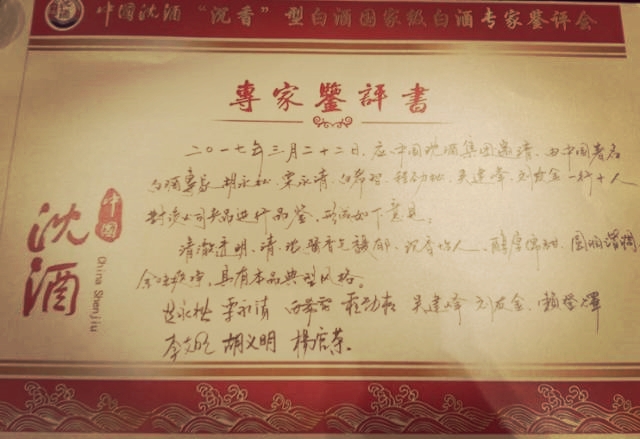 中國沈酒“沉香”型白酒国家级白酒专家鉴评会
專家鑒評書
二〇一七年三月二十二日，应中国沈酒集团邀请，由中国著名
白酒专家胡永松、栗永清、白希智、程劲松、吴建峰、刘友金一行十人
对该公司产品进行品鉴，形成如下意见。
清澈透明、清、酱香气馥郁、沉香怡人、醇厚绵甜、圆润谐调
余味爽净，具有本品典型风格。
胡永松 栗永清 白希智 程劲松 吴建峰 刘友金 赖登燡
李 胡义明 楊官荣
中國
沈酒
China Shenjiu